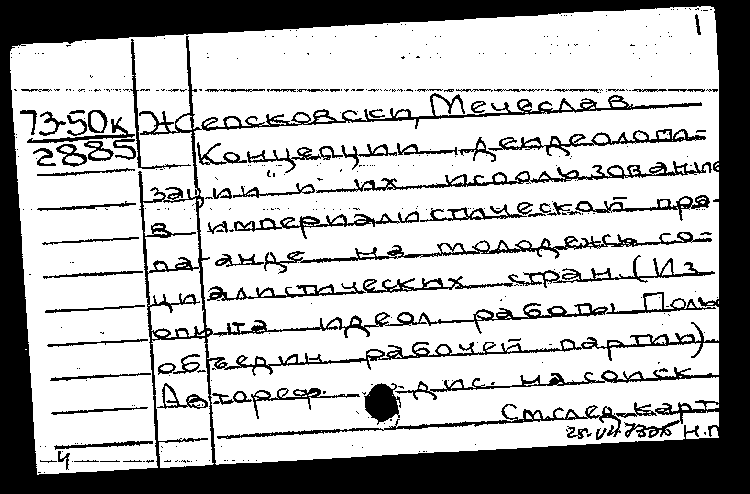 1
73-50к Жепсковски, Мечеслав
2885 Концепции „деидеологи-
зации" и их использование
в империалистической про-
паганде на молодежь со-
циалистических стран. (Из
опыта идеол. работы Польс
объедин. рабочей партии).
Автореф. дис. на соиск.
См.след.карт
Н.П
4